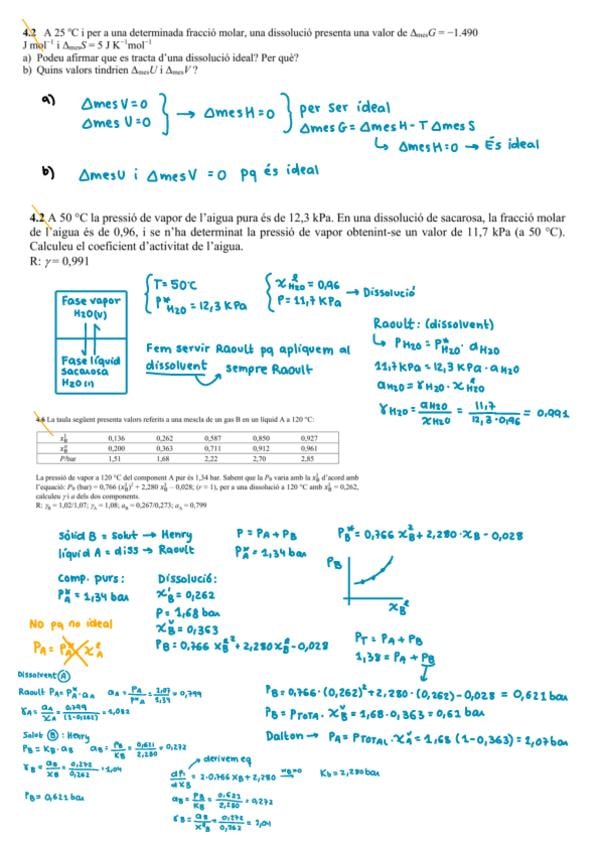 4.2 A 25 °C i per a una determinada fracció molar, una dissolució presenta una valor de ΔmesG = −1.490
J mol⁻¹ i ΔmesS = 5 J K⁻¹mol⁻¹
a) Podeu afirmar que es tracta d'una dissolució ideal? Per què?
b) Quins valors tindrien ΔmesU i ΔmesV?
a) ΔmesV=0
ΔmesU=0 } → ΔmesH=0 } per ser ideal
ΔmesG= ΔmesH - T ΔmesS
↳ ΔmesH=0 → És ideal
b) ΔmesU i ΔmesV =0 pq és ideal
4.2 A 50 °C la pressió de vapor de l'aigua pura és de 12,3 kPa. En una dissolució de sacarosa, la fracció molar
de l'aigua és de 0,96, i se n'ha determinat la pressió de vapor obtenint-se un valor de 11,7 kPa (a 50 °C).
Calculeu el coeficient d'activitat de l'aigua.
R: γ= 0,991
Fase vapor
H2O(v)
Fase líquid
sacarosa
H2O(l)
T= 50°C
P*H2O = 12,3 KPa
xℓH2O = 0,96
P= 11,7 KPa
→ Dissolució
Fem servir Raoult pq apliquem al
dissolvent sempre Raoult
Raoult: (dissolvent)
↳ PH2O = P*H2O · aH2O
11,7 KPa = 12,3 KPa · aH2O
aH2O = γH2O · xℓH2O
γH2O = aH2O/xH2O = 11,7/12,3·0,96 = 0,991
4.6 La taula següent presenta valors referits a una mescla de un gas B en un líquid A a 120 °C:
xℓB 0,136 0,262 0,587 0,850 0,927
xvB 0,200 0,363 0,711 0,912 0,961
P/bar 1,51 1,68 2,22 2,70 2,85
La pressió de vapor a 120 °C del component A pur és 1,34 bar. Sabent que la PB varia amb la xℓB d'acord amb
l'equació: PB (bar) = 0,766 (xℓB)² + 2,280 xℓB – 0,028; (r = 1), per a una dissolució a 120 °C amb xℓB = 0,262,
calculeu γ i a dels dos components.
R: γB = 1,02/1,07; γA = 1,08; aB = 0,267/0,273; aA = 0,799
sòlid B = solut → Henry
líquid A = diss → Raoult
P = PA + PB
P*A = 1,34 bar
P*B = 0,766 xB² + 2,280·xB - 0,028
PB
xBℓ
Comp. purs:
P*A = 1,34 bar
Dissolució:
xℓB = 0,262
P= 1,68 bar
xvB = 0,363
PB = 0,766 xℓB² + 2,280xℓB - 0,028
No pq no ideal
PA = P*A xℓA
PT = PA + PB
1,38 = PA + PB
PB = 0,766·(0,262)² + 2,280·(0,262) - 0,028 = 0,621 bar
PB = PTOTA · xvB = 1,68·0,363 = 0,61 bar
Dalton → PA = PTOTAL · xvA = 1,68 (1-0,363) = 1,07bar
Dissolvent (A)
Raoult PA= P*A·aA aA = PA/P*A = 1,07/1,34 = 0,799
γA = aA/xA = 0,799/(1-0,262) = 1,082
Solut (B): Henry
PB = KB·aB aB = PB/KB = 0,621/2,280 = 0,272
γB = aB/xB = 0,272/0,262 = 1,04
PB = 0,621 bar
derivem eq
dPB/dxB = 2·0.766 xB + 2,280
KB= 2,280 bar
aB = PB/KB = 0,621/2,280 = 0,272